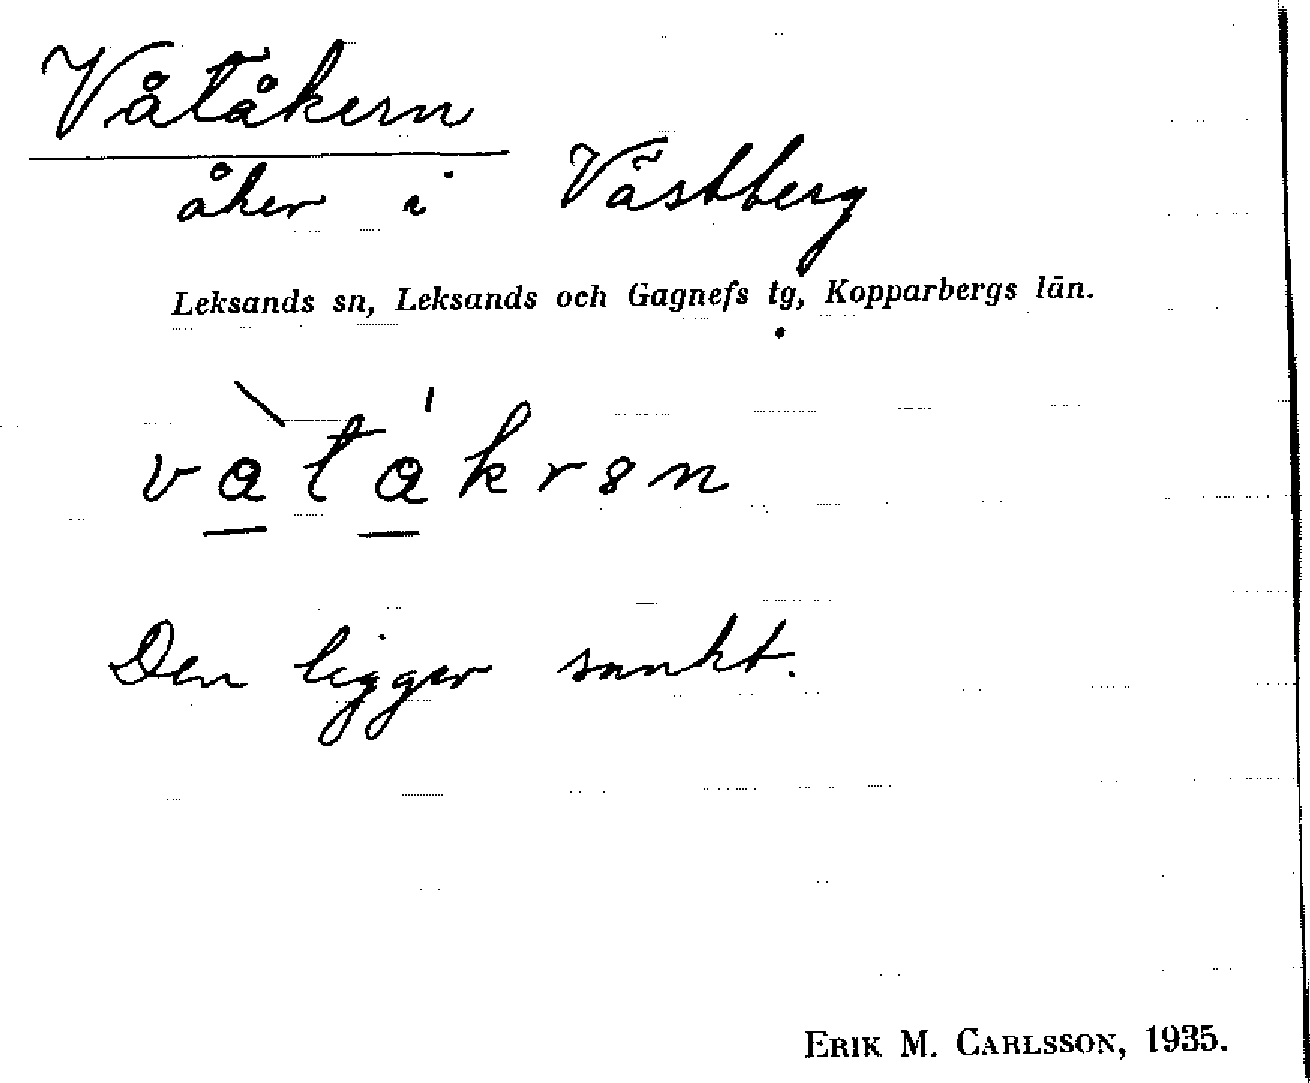 Våtåkern
åker i Västberg
Leksands sn, Leksands och Gagnefs tg, Kopparbergs län.
vàtákrøn
Den ligger sankt.
ERIK M. CARLSSON, 1935.